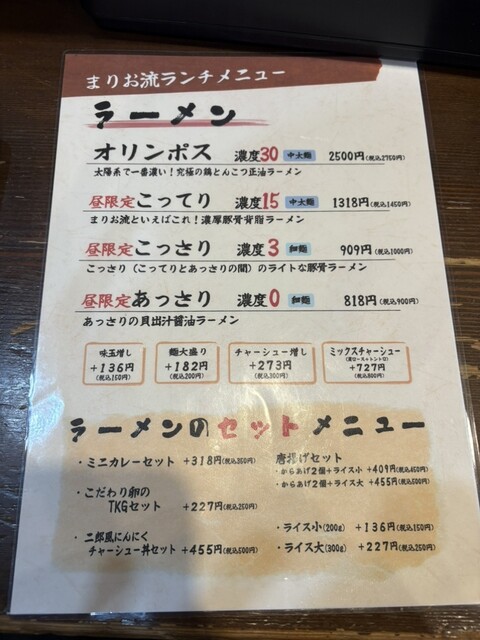 まりお流ランチメニュー
ラーメン
オリンポス 濃度30 中太麺 2500円(税込2750円)
太陽系で一番濃い！究極の鶏とんこつ正油ラーメン
昼限定こってり 濃度15 中太麺 1318円(税込1450円)
まりお流といえばこれ！濃厚豚骨背脂ラーメン
昼限定こっさり 濃度3 細麺 909円(税込1000円)
こっさり（こってりとあっさりの間）のライトな豚骨ラーメン
昼限定あっさり 濃度0 細麺 818円(税込900円)
あっさりの貝出汁醤油ラーメン
味玉増し
+136円
(税込150円)
麺大盛り
+182円
(税込200円)
チャーシュー増し
+273円
(税込300円)
ミックスチャーシュー
(肩ロース+トントロ)
+727円
(税込800円)
ラーメンのセットメニュー
・ミニカレーセット +318円(税込350円)
・こだわり卵の
TKGセット +227円(税込250円)
・二郎風にんにく
チャーシュー丼セット +455円(税込500円)
唐揚げセット
・からあげ2個+ライス小 +409円(税込450円)
・からあげ2個+ライス大 +455円(税込500円)
・ライス小(200g) +136円(税込150円)
・ライス大(300g) +227円(税込250円)